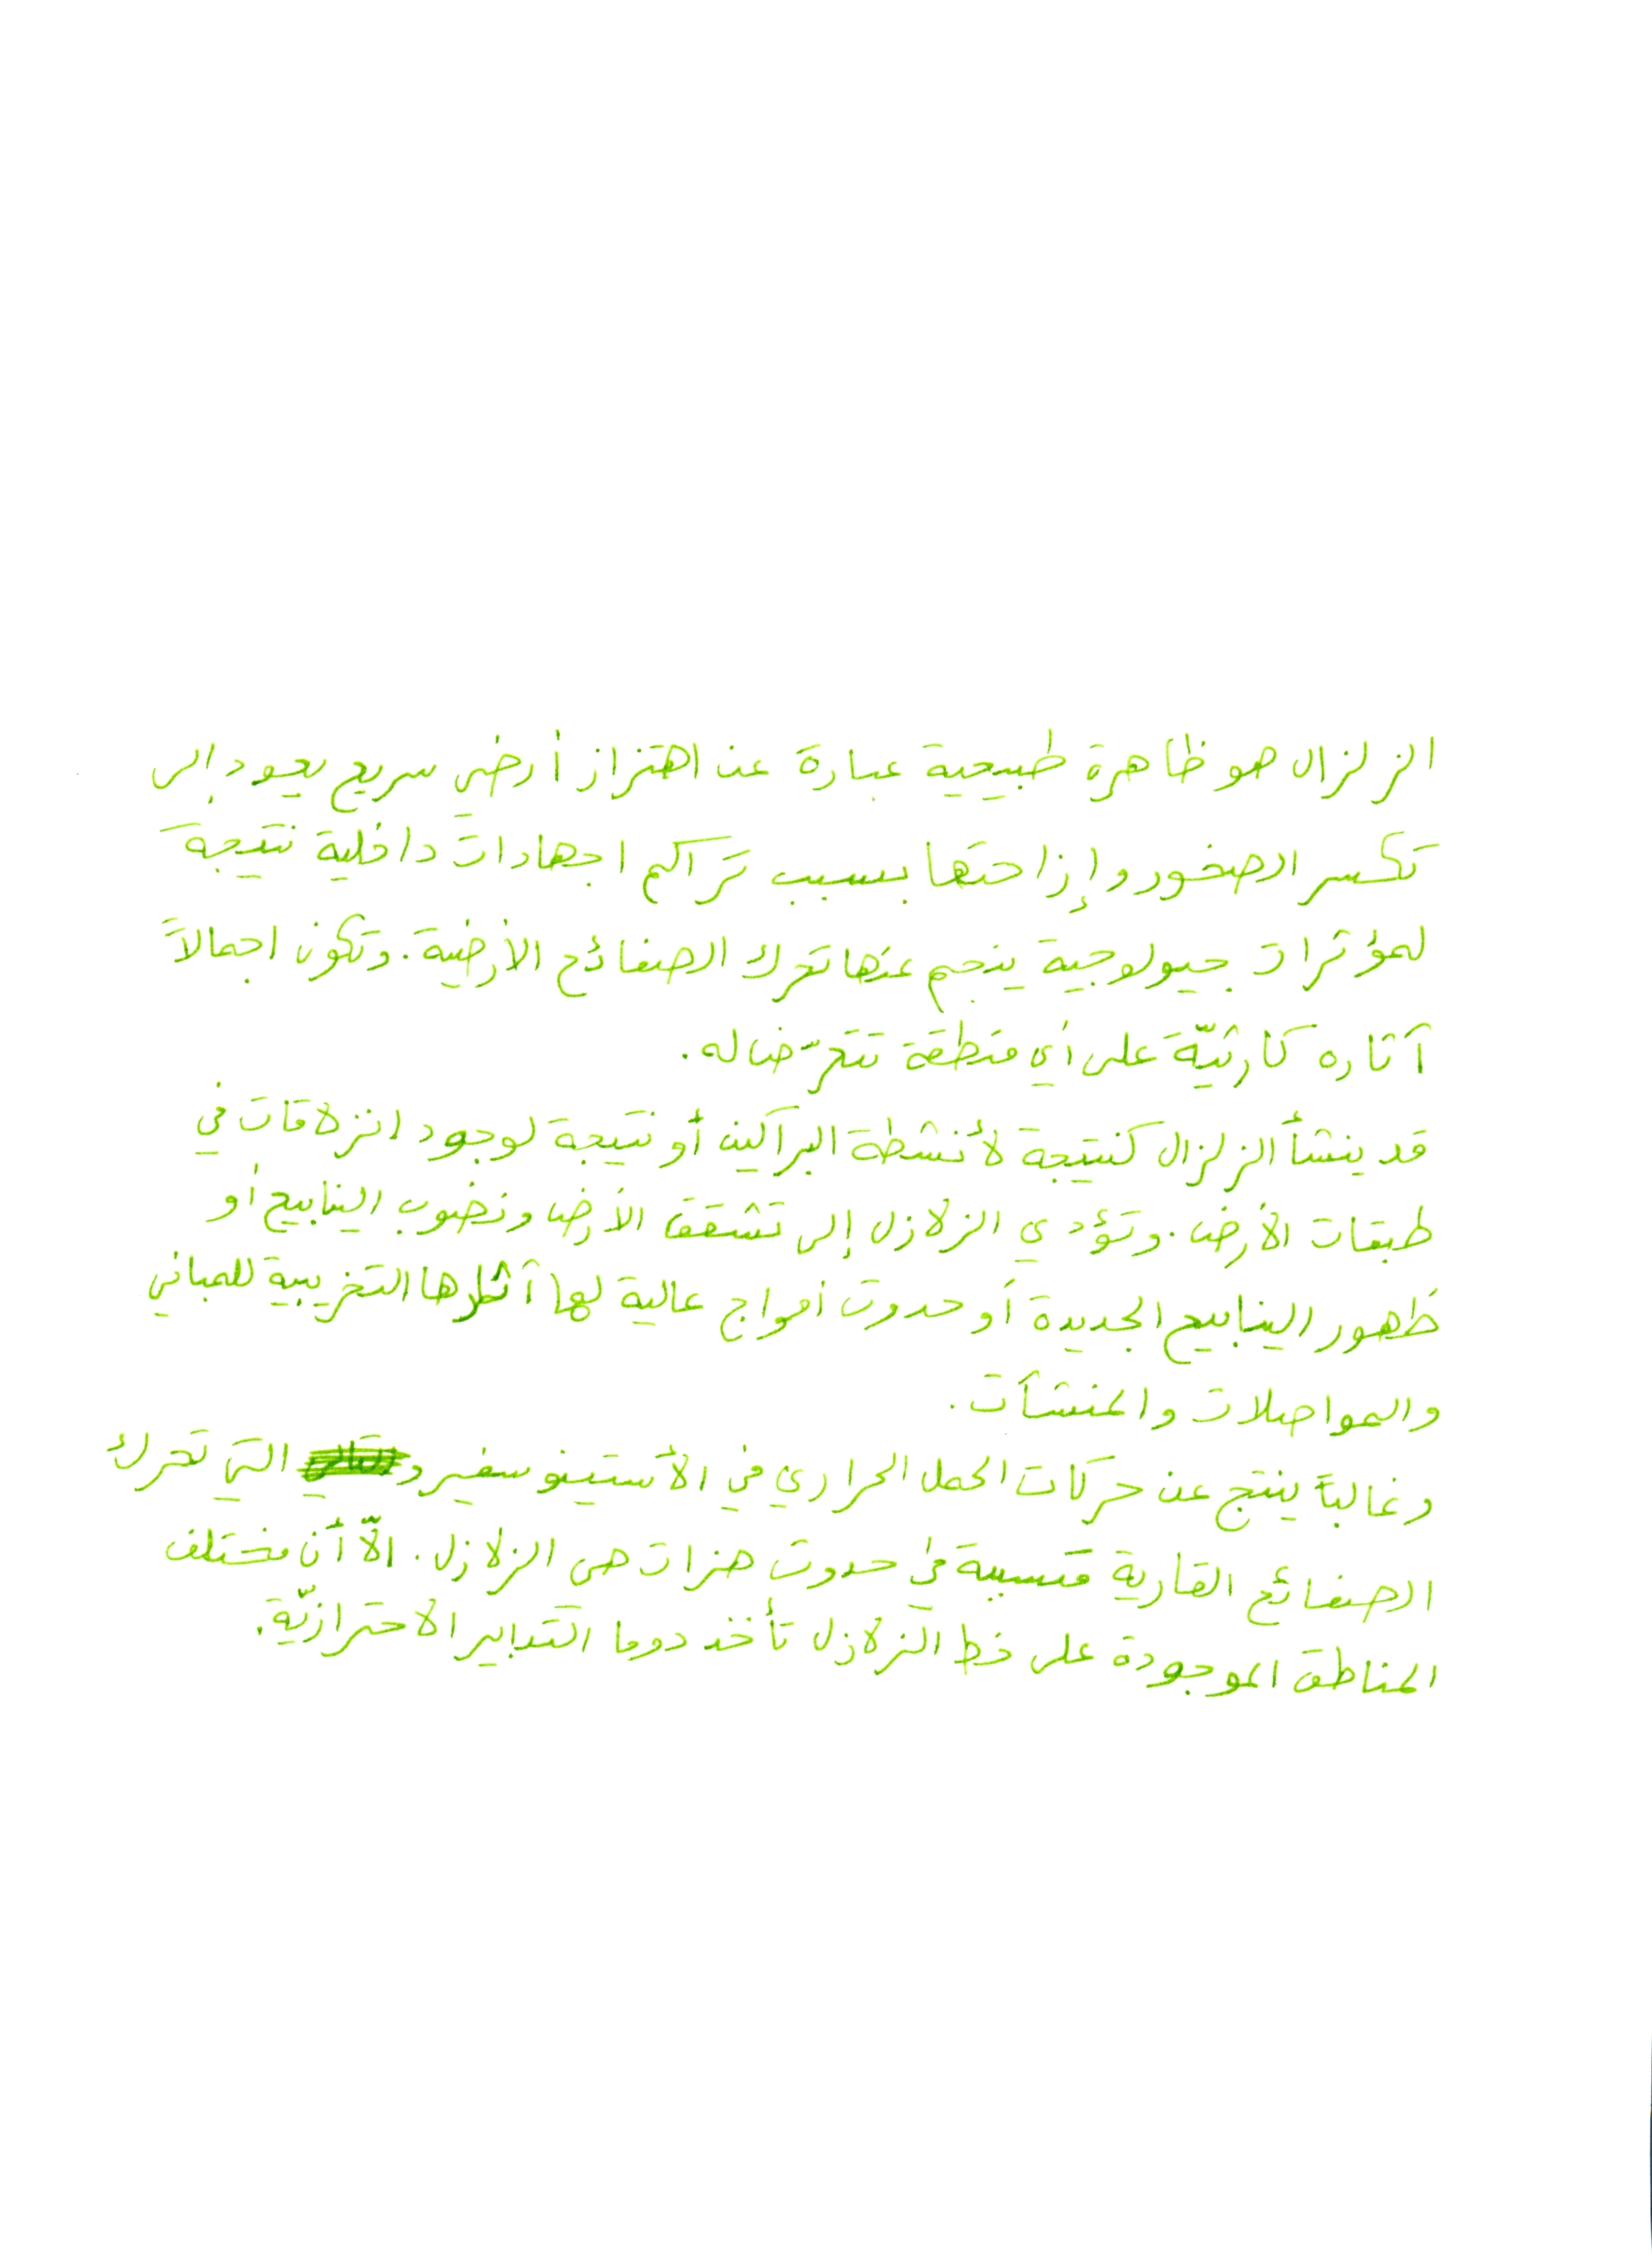 الزلزال هو ظاهرة طبيعية عبارة عن اهتزاز أرضي سريع يعود إلى
تكسر الصخور وإزاحتها بسبب تراكم اجهادات داخلية نتيجة
لمؤثرات جيولوجية ينجم عنها تحرك الصفائح الأرضية. وتكون اجمالاً
آثاره كارثيّة على أي منطقة تتعرّض له.
قد ينشأ الزلزال كنتيجة لأنشطة البراكين أو نتيجة لوجود انزلاقات في
طبقات الأرض. وتؤدي الزلازل إلى تشقق الأرض ونضوب الينابيع أو
ظهور الينابيع الجديدة أو حدوث أمواج عالية لها آثارها التخريبية للمباني
والمواصلات والمنشآت.
وغالباً ينتج عن حركات الحمل الحراري في الأستينوسفير و التي تحرك
الصفائح القارية متسببة في حدوث هزات هي الزلازل. الاّ أن مختلف
المناطق الموجودة على خط الزلازل تأخذ دوما التدابير الاحترازيّة.